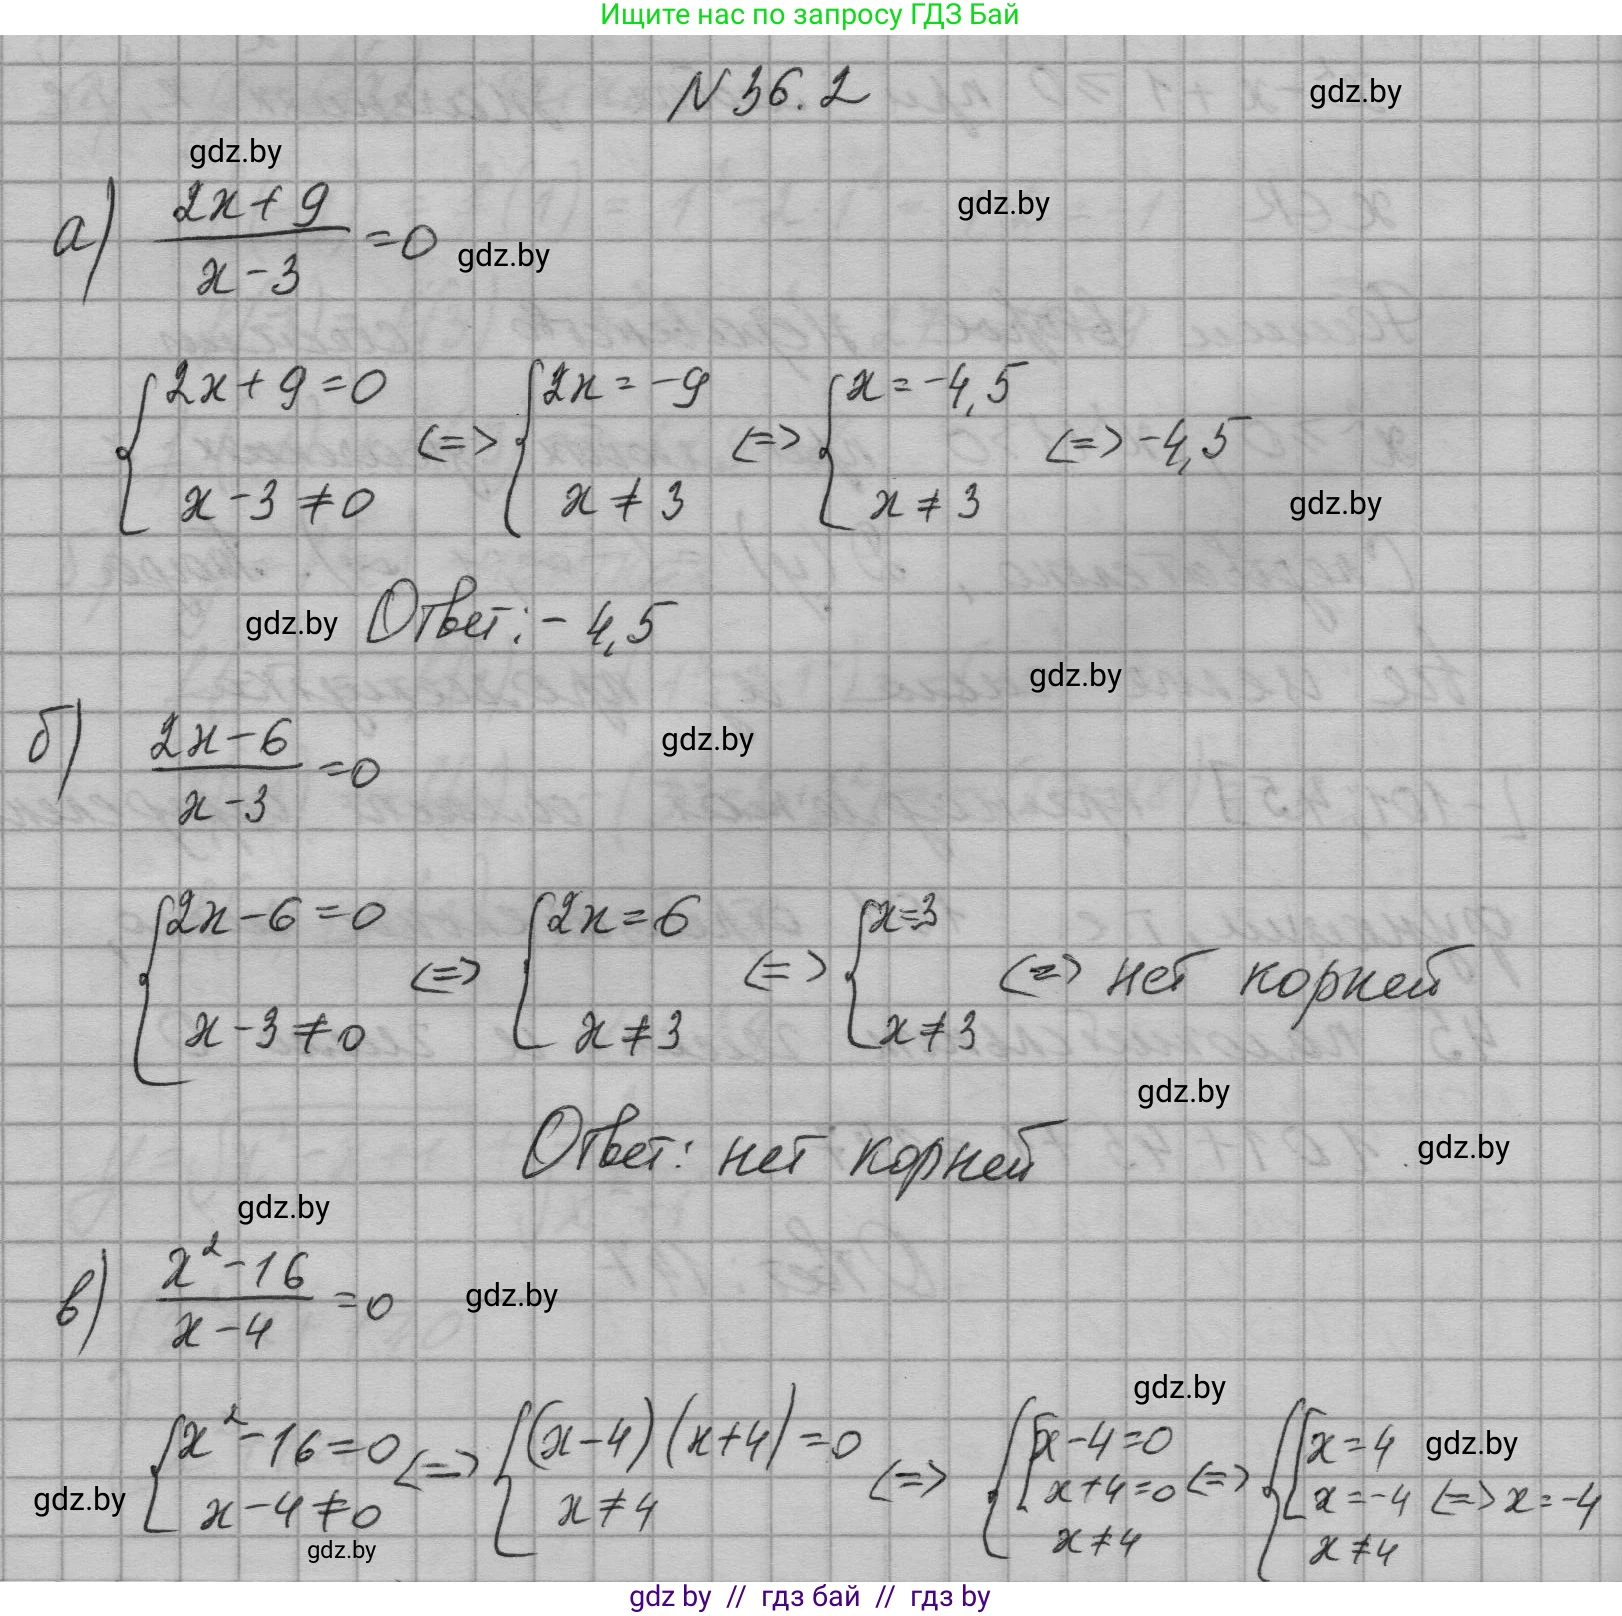 Ищите нас по запросу ГДЗ Бай
N 36.2
gdz.by
gdz.by
а) (2x+9)/(x-3) =0
gdz.by
gdz.by
{2x+9=0; x-3≠0 <=> {2x=-9; x≠3 <=> {x=-4,5; x≠3 <=> -4,5
gdz.by
gdz.by
Ответ: -4,5
gdz.by
б) (2x-6)/(x-3) =0
gdz.by
{2x-6=0; x-3≠0 <=> {2x=6; x≠3 <=> {x=3; x≠3 <=> нет корней
gdz.by
Ответ: нет корней
gdz.by
gdz.by
в) (x²-16)/(x-4) =0
gdz.by
gdz.by
{x²-16=0; x-4≠0 <=> {(x-4)(x+4)=0; x≠4 <=> {[x-4=0; x+4=0; x≠4 <=> {[x=4; x=-4; x≠4 <=> x=-4
gdz.by
gdz.by
gdz.by
gdz by // гдз бай // гдз by